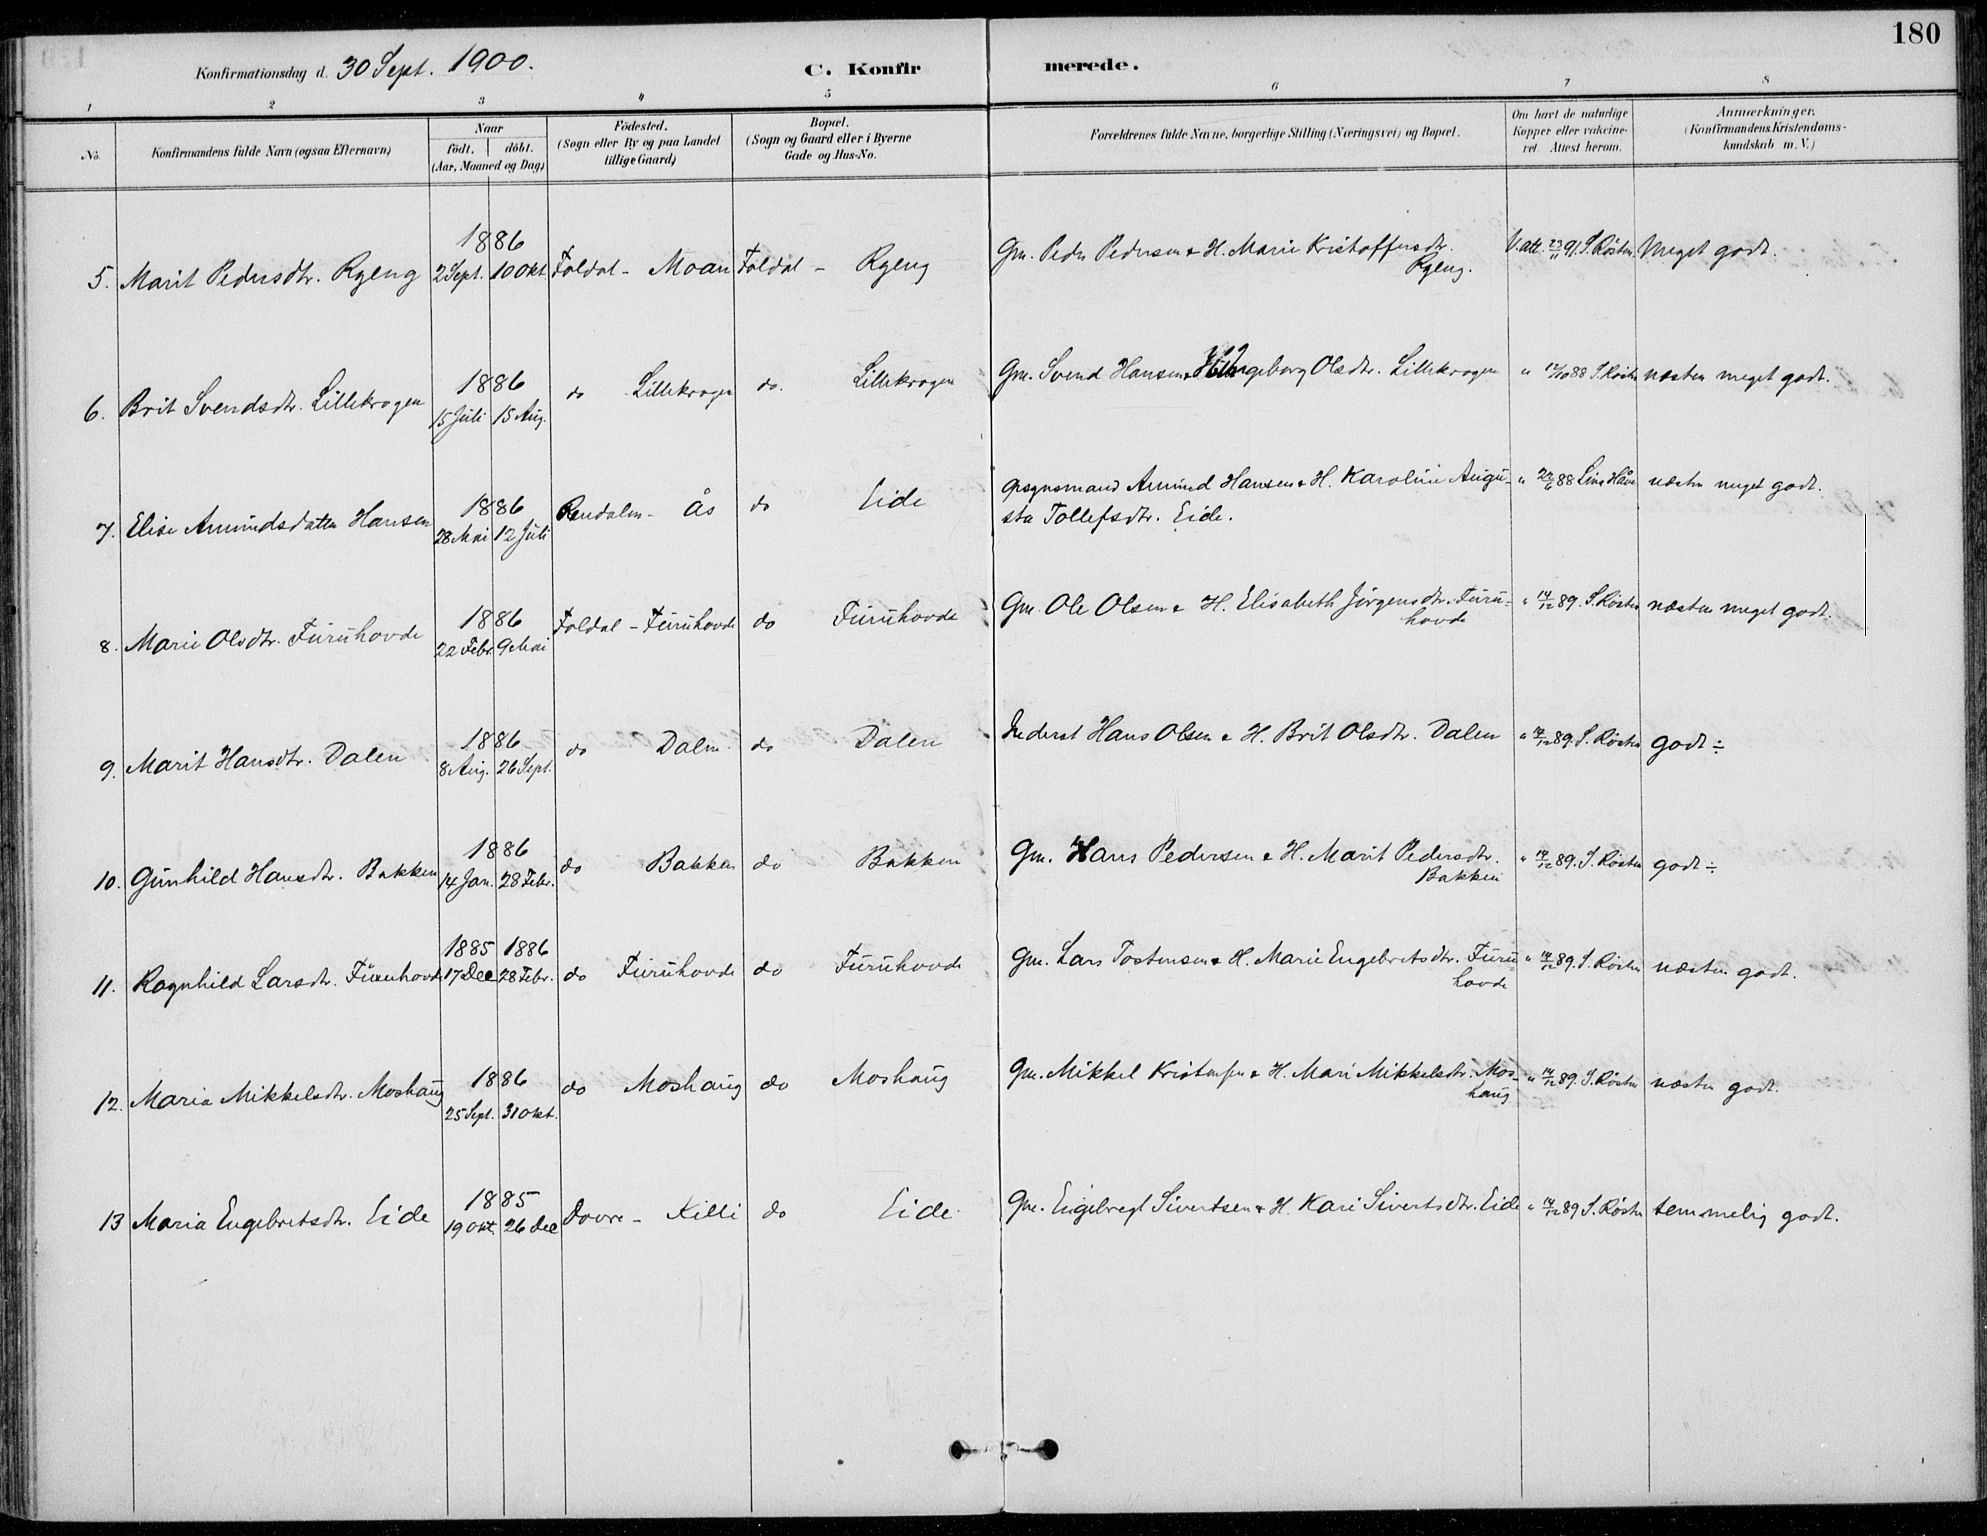 180
Konfirmationsdag d. 30 Sept. 1900. C. Konfirmerede.
1 2 3 4 5 6 7 8
No. Konfirmandens fulde Navn (ogsaa Efternavn) Naar født. døbt. (Aar, Maaned og Dag) Fødested. (Sogn eller By og paa Landet tillige Gaard) Bopæl. (Sogn og Gaard eller i Byerne Gade og Hus-No. Forældrenes fulde Navne, borgerlige Stilling (Næringsvei) og Bopæl. Om havt de naturlige Kopper eller vakcineret. Attest herom. Anmærkninger. (Konfirmandens Kristendomskundskab m. V.)
1886
5. Marit Pedersdtr. Rgeng 2 Sept. 10 Okt Foldal - Moan Foldal - Rgeng Gm. Peder Pedersen & H. Marie Kristoffersdtr. Rgeng. V. att. 23/11 91 S. Røsten. Meget godt.
1886
6. Brit Svendsdtr. Lillekrogen 15 Juli 15 Aug. do Lillekrogen do. Lillekrogen Gm. Svend Hansen & H. Ingeborg Olsdtr. Lillekrogen " 88 S. Røsten næsten meget godt.
1886
7. Elise Amundsdatter Hansen 28 Mai 12 Juli Rendalen - Ås do Eide Opsynsmand Amund Hansen & H. Karoline Augusta Tollefsdtr. Eide. " 88 næsten meget godt.
1886
8. Marie Olsdtr. Furuhovde 22 Febr. 9 Mai Foldal - Furuhovde do Furuhovde Gm. Ole Olsen & H. Elisabeth Jörgensdtr. Furuhovde " 14/12 89. S. Røsten næsten meget godt.
1886
9. Marit Hansdtr. Dalen 8 Aug. 26 Sept. do Dalen do Dalen Inderst Hans Olsen & H. Brit Olsdtr. Dalen " 14/12 89. S. Røsten godt ÷
1886
10. Gunhild Hansdtr. Bakken 14 Jan. 28 Febr. do Bakken do Bakken Gm. Hans Pedersen & H. Marit Pedersdtr. Bakken " 14/12 89. S. Røsten godt ÷
1885 1886
11. Ragnhild Larsdtr. Furuhovde 17 Dec 28 Febr. do Furuhovde do Furuhovde Gm. Lars Tostensen & H. Marie Engebretsdtr. Furuhovde " 14/12 89. S. Røsten næsten godt.
1886
12. Maria Mikkelsdtr. Moshaug 25 Sept. 31 Okt. do Moshaug do Moshaug Gm. Mikkel Kristensen & H. Mari Mikkelsdtr. Moshaug " 14/12 89. S. Røsten næsten godt.
1885
13 Maria Engebretsdtr. Eide 19 Okt. 26 Dec Dovre - Killi do Eide. Gm. Engebregt Sivertsen & H. Kari Sivertsdtr. Eide " 14/12 89 S. Røsten temmelig godt.